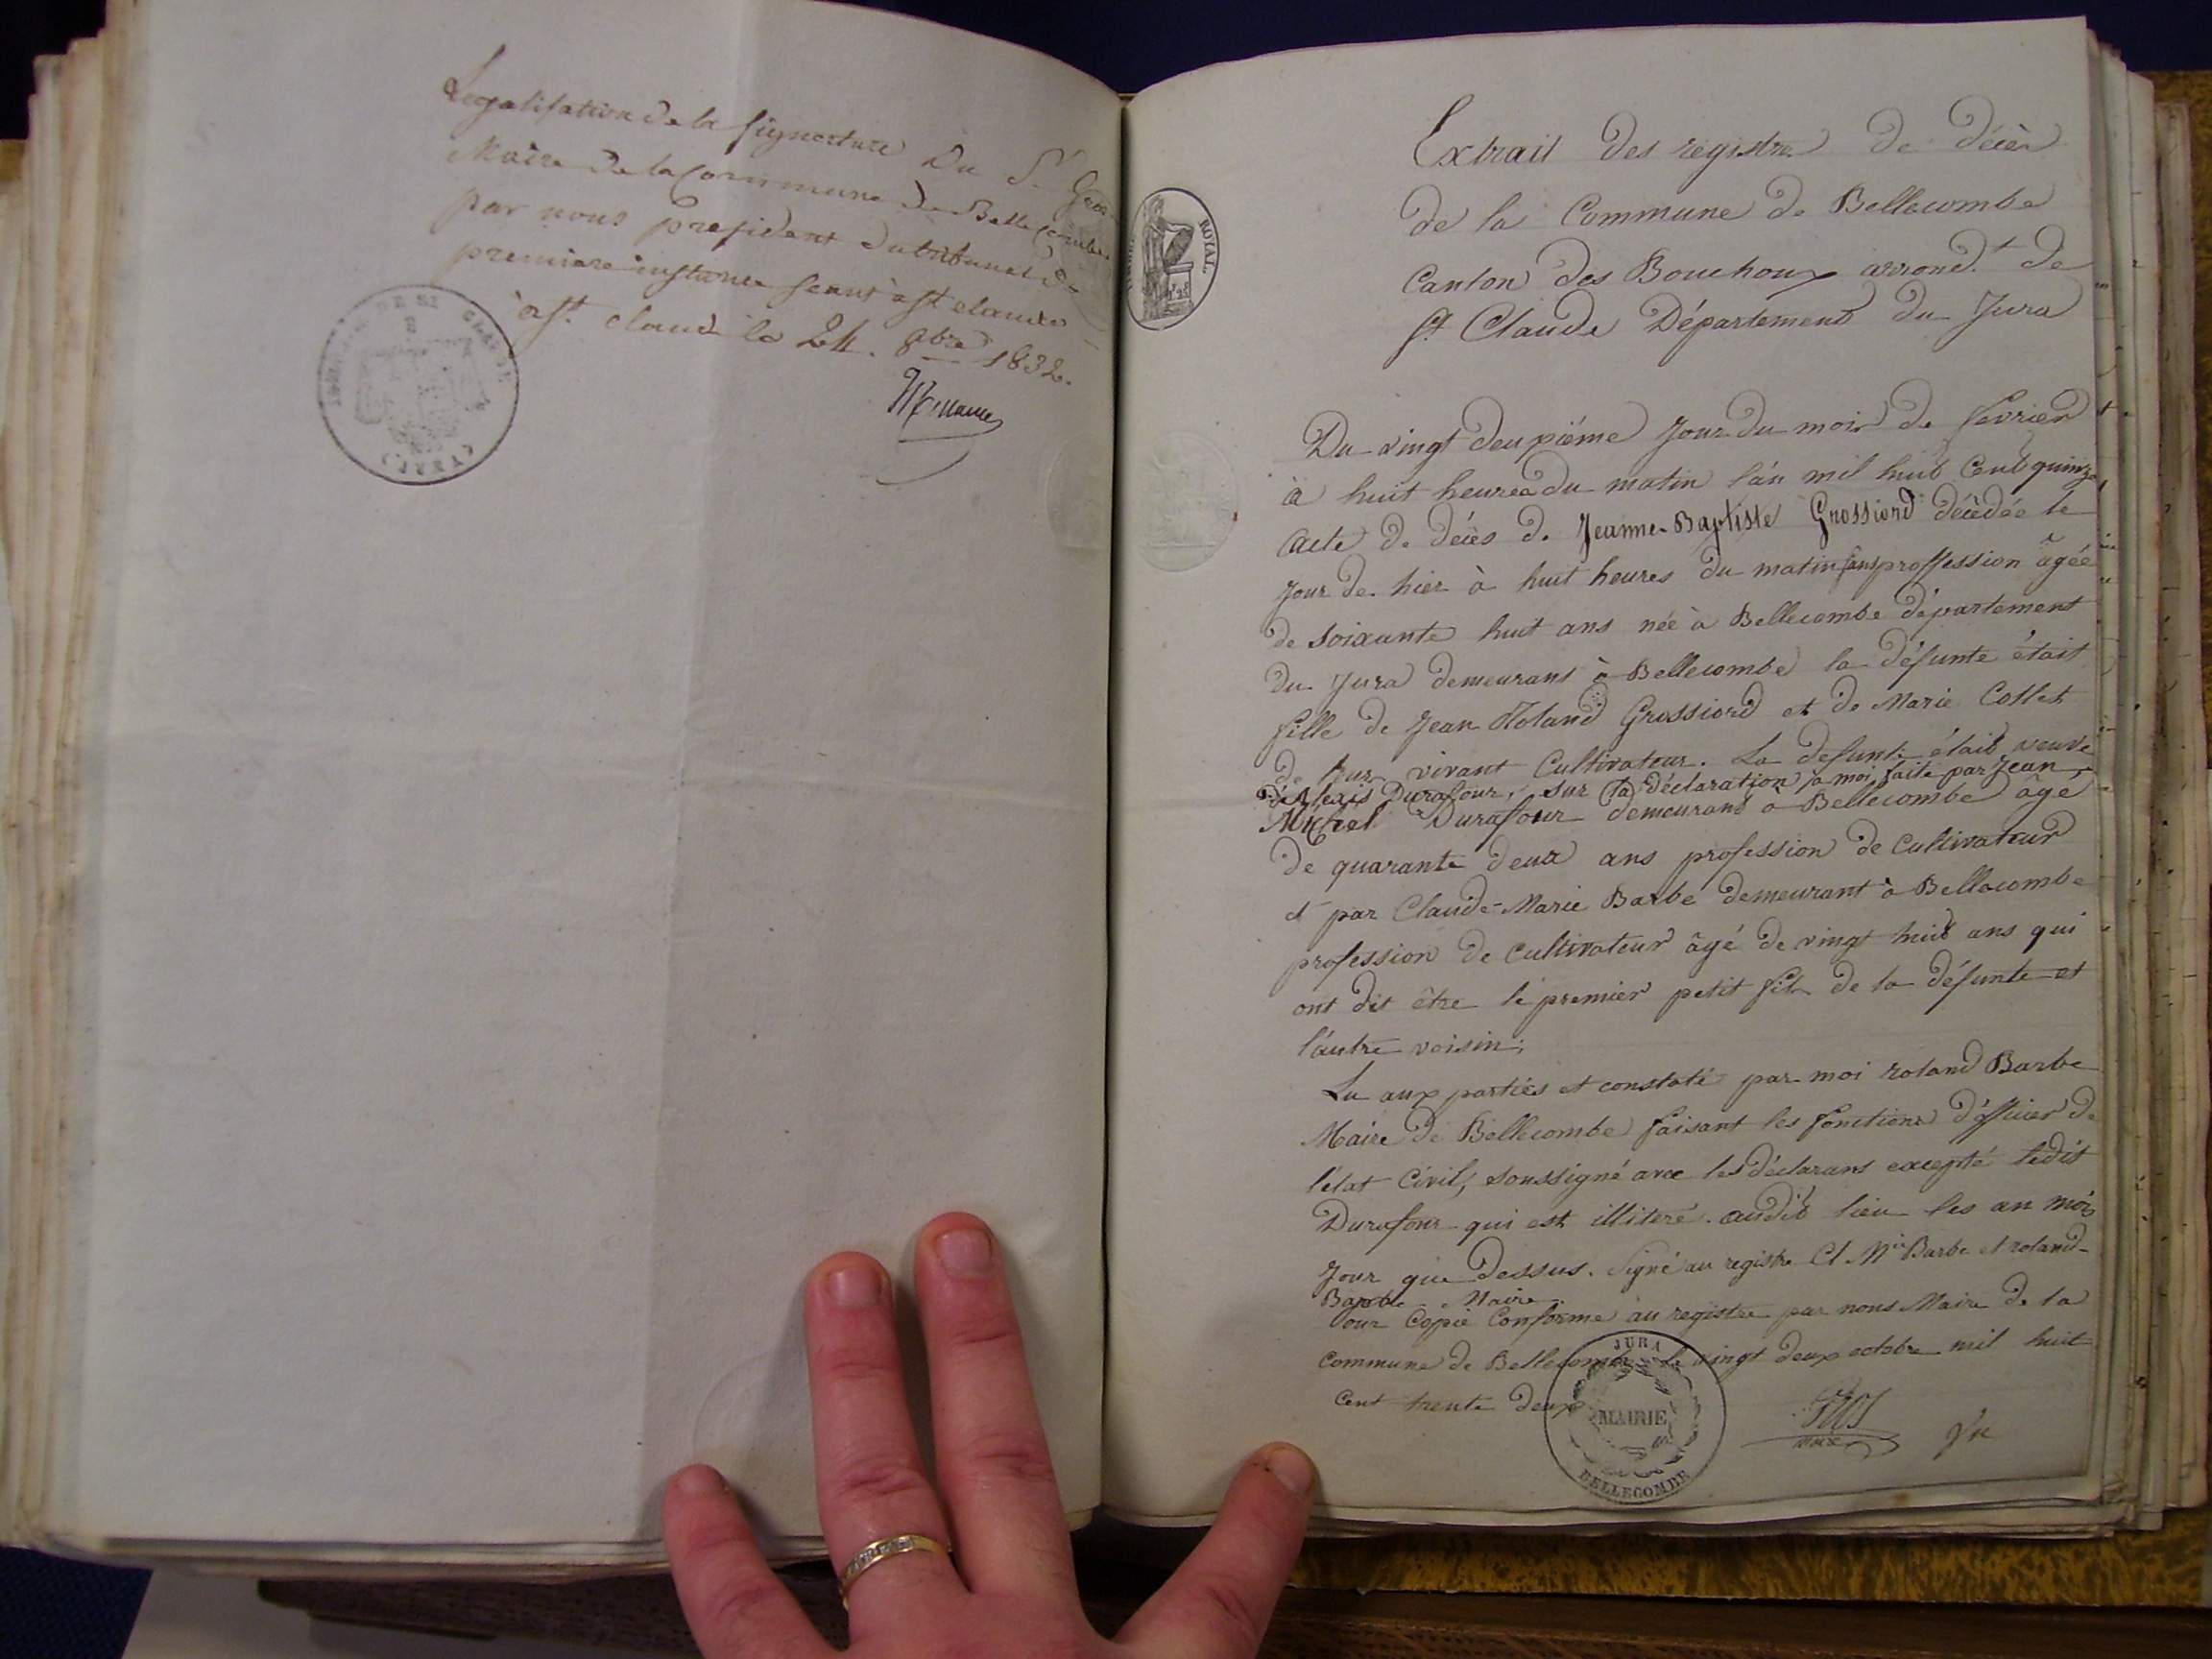 Legalisation de la signature Du Sr. Gros
Maire de la Commune de Bellecombe
par nous president du tribunal de
premiere instance seant à st claude
à st. claude le 24. 8bre 1832.
ROYAL
Extrait des registres de décès
de la Commune de Bellecombe
Canton des Bouchoux arrond.t de
St. Claude Département du Jura
Du vingt deuxiéme jour du mois de fevrier
à huit heures du matin l'án mil huit Cent quinze
Acte de décès de Jeanne-Baptiste Grossiord décédée le
jour de hier à huit heures du matin sans proffession âgée
de soixante huit ans née à Bellecombe département
du Jura demeurant à Bellecombe la défunte était
fille de Jean Roland Grossiord et de Marie Collet
de leur vivant Cultivateur. La defunte était veuve
d'Alexis Durafour, sur la déclaration à moi faite par Jean
Michel Durafour demeurant à Bellecombe âgé
de quarante deux ans profession de Cultivateur
et par Claude-Marie Barbe demeurant à Bellecombe
profession de Cultivateur âgé de vingt huit ans qui
ont dit être le premier petit fils de la défunte et
l'áutre voisin;
Lu aux parties et constaté par moi roland Barbe
Maire de Bellecombe faisant les fonctions d'officier de
l'état Civil, soussigné avec les déclarans excepté ledit
Durafour qui est illiteré. audit lieu les an mois
Jour que dessus. Signé au registre Cl Mie Barbe et roland
Barbe Maire.
Pour Copie Conforme au registre par nous Maire de la
Commune de Bellecombe le vingt deux octobre mil huit
Cent trente deux
JURA
MAIRIE
BELLECOMBE